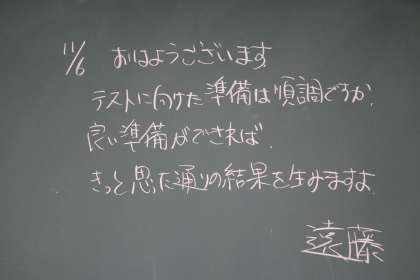 11/6 おはようございます
テストに向けた準備は順調ですか。
良い準備ができれば、
きっと思った通りの結果を生みますよ
遠藤